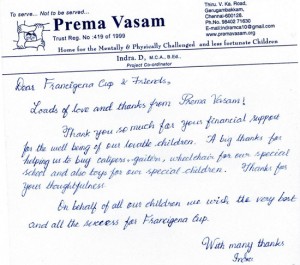 To serve... Not to be served...
Prema Vasam
Trust Reg. No :419 of 1999
Thiru. V. Ka. Road,
Gerugambakkam,
Chennai-600128.
Ph. 98402 71630
www.premavasam.org
Home for the Mentally & Physically Challenged and less fortunate Children
Indra. D, M.C.A., B.Ed.,
Project Co-ordinator
Dear Francigena Cup & Friends,
Loads of love and thanks from Prema Vasam!
Thank you so much for your financial support
for the well being of our lovable children. A big thanks for
helping us to buy calipers, gaiters, wheelchair for our special
school and also toys for our special children. Thanks for
your thoughtfulness
On behalf of all our children we wish the very best
and all the success for Francigena Cup.
With many thanks
Indra